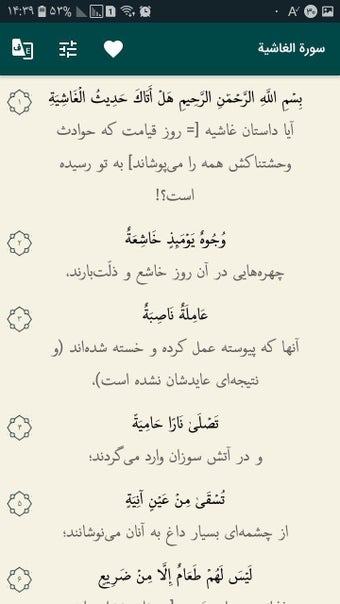 ۱۴:۳۹ ۵۳%
سورة الغاشية
بِسْمِ اللَّهِ الرَّحْمَٰنِ الرَّحِيمِ هَلْ أَتَاكَ حَدِيثُ الْغَاشِيَةِ
۱
آیا داستان غاشیه [= روز قیامت که حوادث
وحشتناکش همه را می‌پوشاند] به تو رسیده
است؟!
وُجُوهٌ يَوْمَئِذٍ خَاشِعَةٌ
۲
چهره‌هایی در آن روز خاشع و ذلّت‌بارند،
عَامِلَةٌ نَاصِبَةٌ
۳
آنها که پیوسته عمل کرده و خسته شده‌اند (و
نتیجه‌ای عایدشان نشده است).
تَصْلَىٰ نَارًا حَامِيَةً
۴
و در آتش سوزان وارد می‌گردند؛
تُسْقَىٰ مِنْ عَيْنٍ آنِيَةٍ
۵
از چشمه‌ای بسیار داغ به آنان می‌نوشانند؛
لَيْسَ لَهُمْ طَعَامٌ إِلَّا مِنْ ضَرِيعٍ
۶